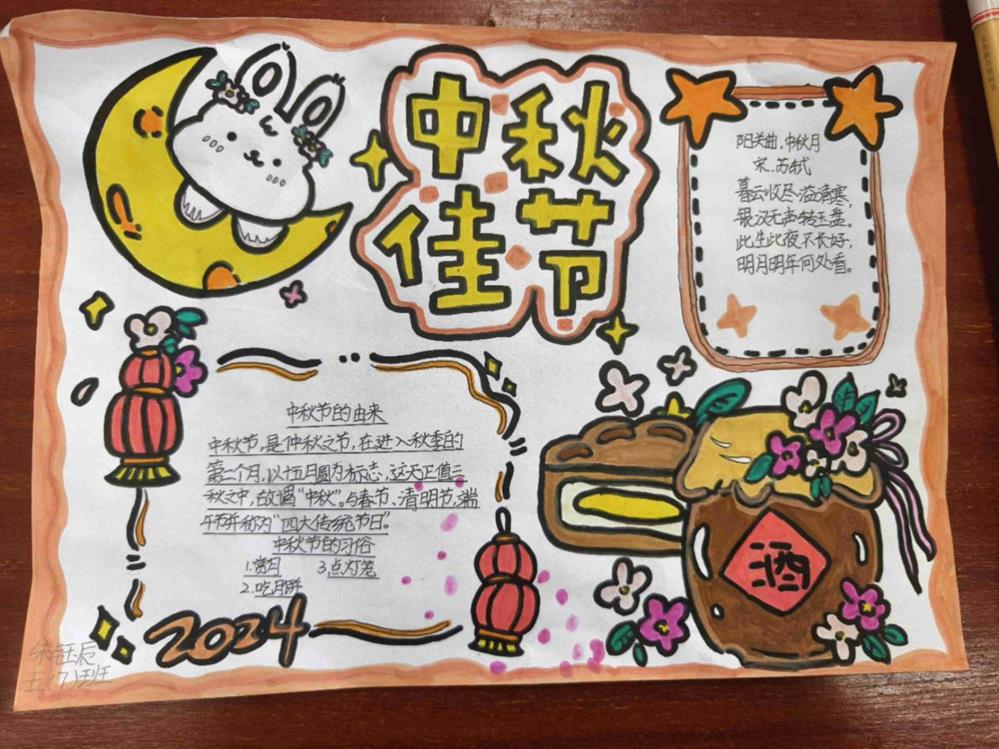 中秋
佳节
阳关曲.中秋月
宋.苏轼
暮云收尽溢清寒,
银汉无声转玉盘。
此生此夜不长好,
明月明年何处看。
中秋节的由来
中秋节,是仲秋之节,在进入秋季的
第二个月,以十五月圆为标志,这天正值三
秋之中,故谓“中秋”。与春节、清明节、端
午节并称为“四大传统节日”。
中秋节的习俗
1.赏月 3.点灯笼
2.吃月饼
酒
2024
钰辰
五(7)班